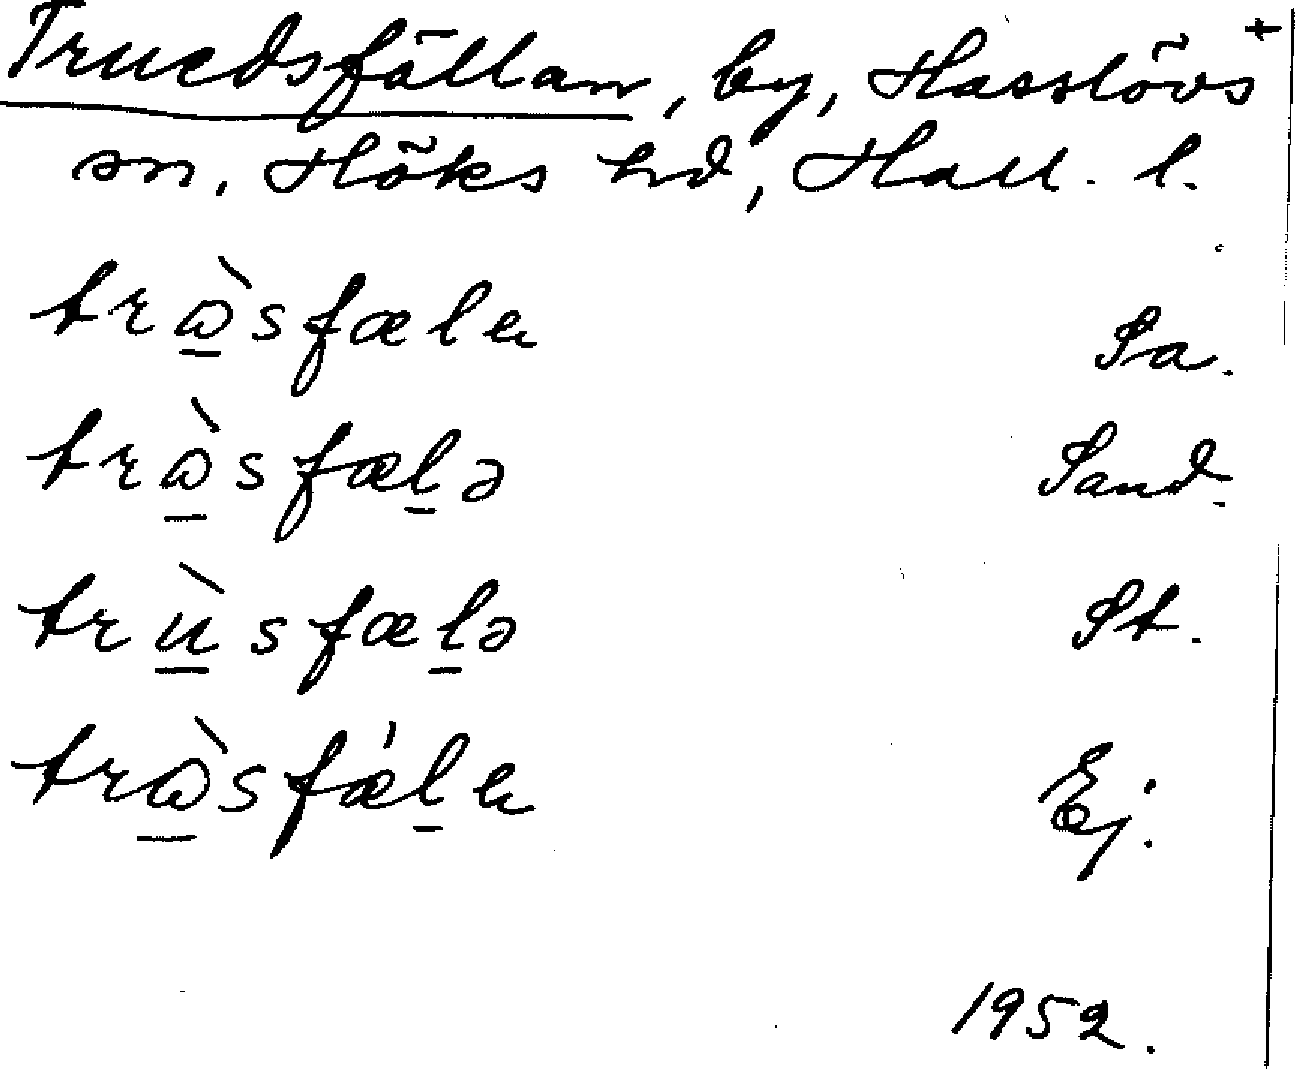 Truedsfällan, by, Hasslövs +
sn, Höks hd, Hall. l.
trɷ̠̀sfælɐ Sa.
trɷ̠̀sfæl̠ə Sand.
trù̠sfæl̠ə St.
trɷ̠̀sfǽl̠ɐ Ej.
1952.